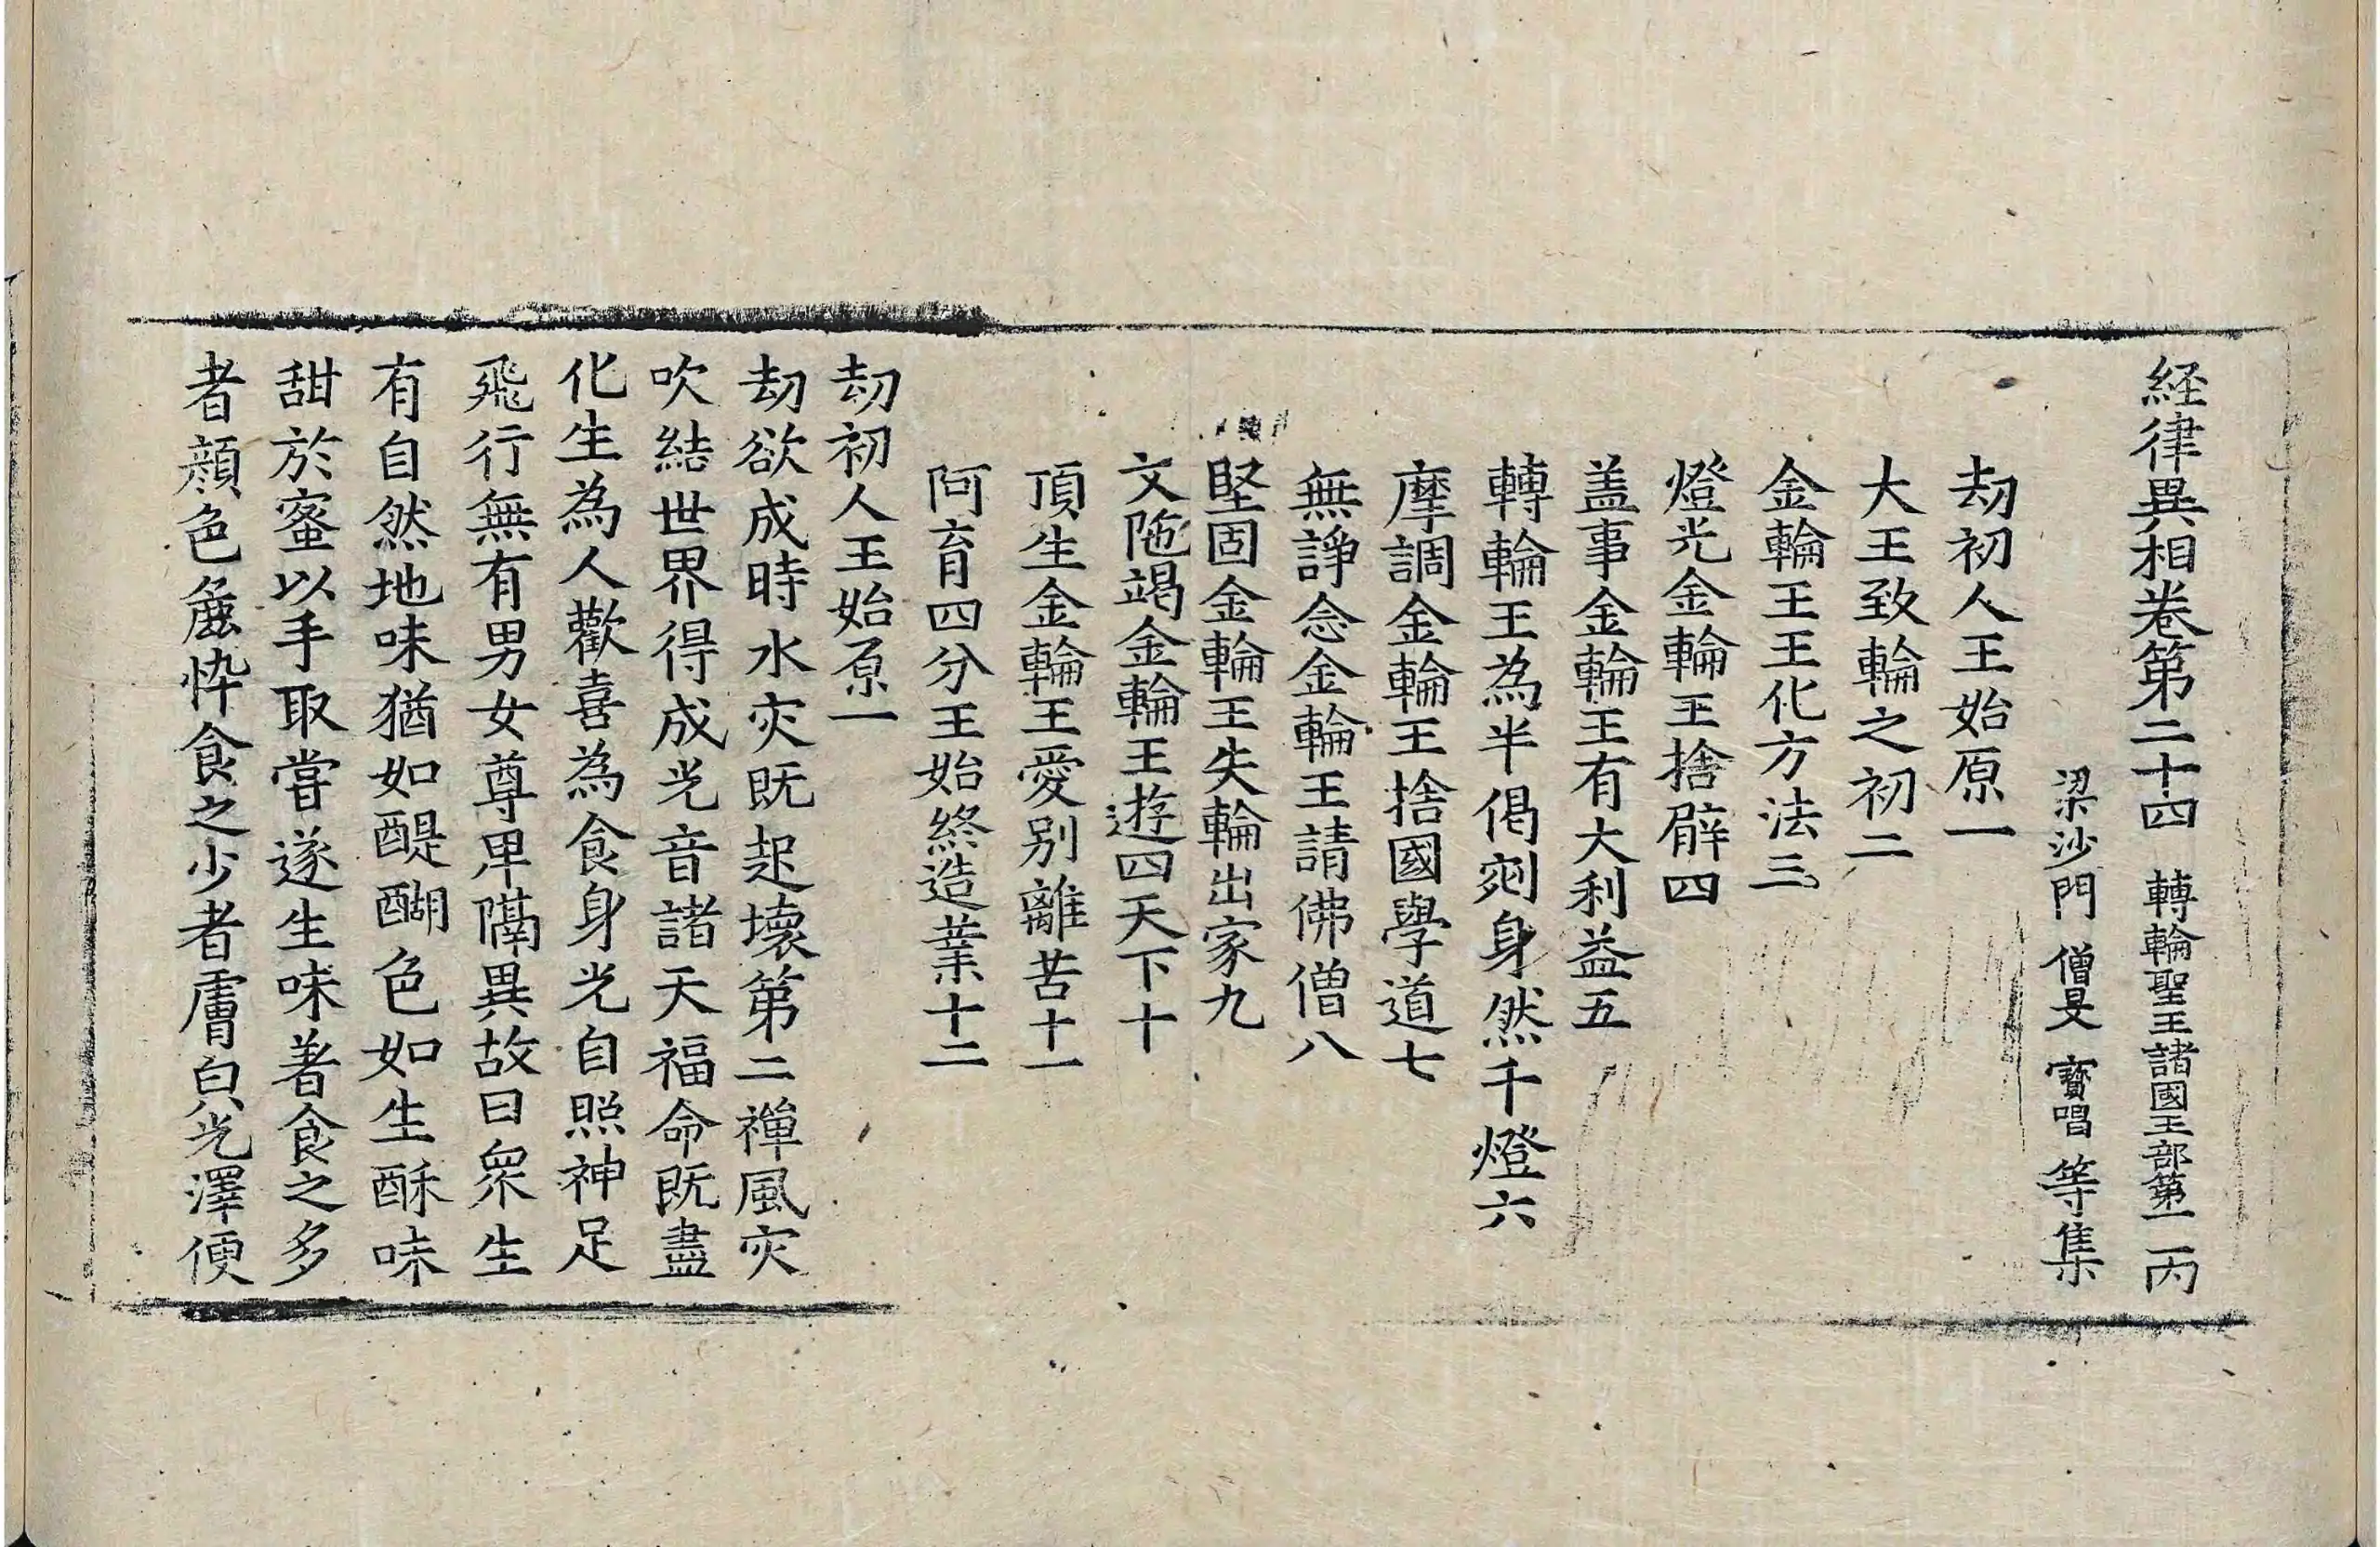 経律異相卷第二十四　轉輪聖王諸國王部第一　丙
梁沙門　僧旻　寶唱　等集
劫初人王始原一
大王致輪之初二
金輪王王化方法三
燈光金輪王捨臂四
盖事金輪王有大利益五
轉輪王為半偈剜身然千燈六
摩調金輪王捨國學道七
無諍念金輪王請佛僧八
堅固金輪王失輪出家九
文陁竭金輪王遊四天下十
頂生金輪王愛別離苦十一
阿育四分王始終造業十二
劫初人王始原一
劫欲成時水灾既起壞第二禪風灾
吹結世界得成光音諸天福命既盡
化生為人歡喜為食身光自照神足
飛行無有男女尊卑隔異故曰衆生
有自然地味猶如醍醐色如生酥味
甜於蜜以手取甞遂生味著食之多
者顔色麁悴食之少者膚白光澤便